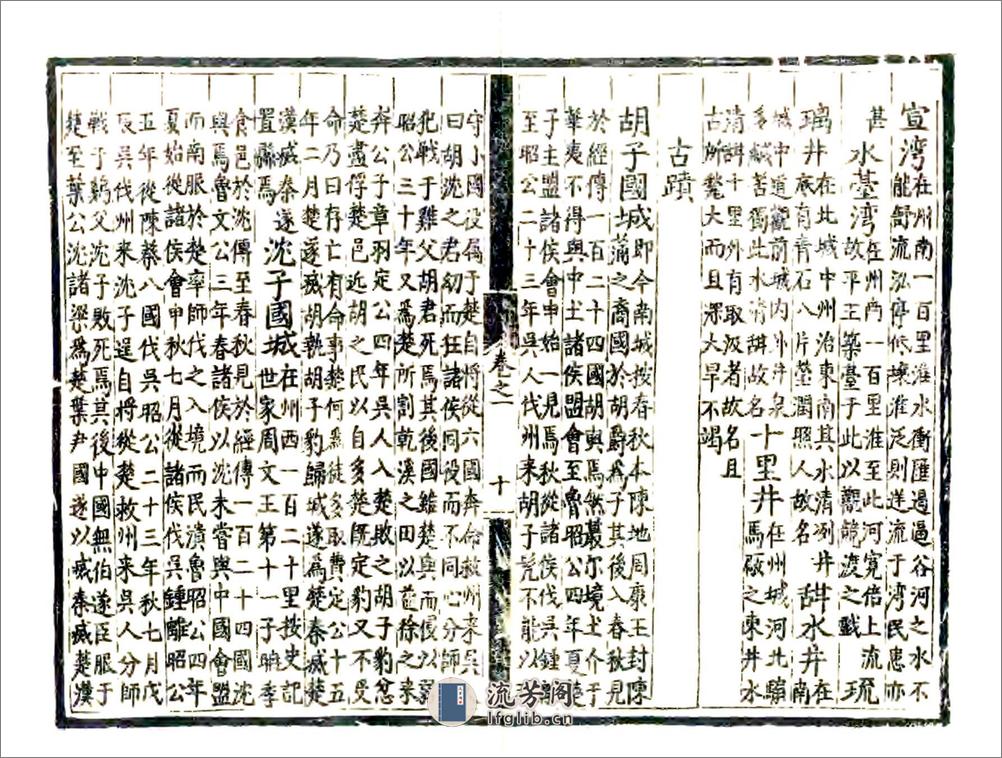 宣灣在州南一百里淮水衝匯過逼谷河之水不
甚能舒流泓停低壤淮泛則送流于灣民患亦
水臺灣在州西一百里淮至此河寬倍上流
故平王築臺于此以觀競渡之戲
璃井在北城中州治東南其水清冽井
底有青石八片瑩潤照人故名
甜水井在南
城中道觀前城內外井泉
多鹹苦獨此水清甜故名
十里井在州城河北
馬之東井水
清甜十里外有取汲者故名且
古所甃大而且深大旱不竭
古蹟
胡子國城即今南城按春秋本陳地周康王封陳
滿之裔國於胡爵為子其後入春秋見
於經傳一百二十四國胡與焉無蕞尔境土介于
華夷不得與中土諸侯盟會至魯昭公四年夏楚
子主盟諸侯會申始一見焉秋從諸侯伐吳鍾
至昭公二十三年吳人伐州來胡子髡不能以
守小國役屬于楚自將從六國奔命救州來吳
曰胡沈之君幼而狂諸侯同役而不同心分師
犯戰于雞父胡君死焉其後國雖楚與而侵以
昭公三十年又為楚所割乾溪之田以益徐之來
奔公子章羽定公四年吳人入楚敗之胡子豹忿
楚盡俘楚邑近胡之民以自多楚既定豹又不受
命乃曰存亡有命事楚何為徒多取費定公十五
年二月楚遂滅胡執胡子豹歸城遂為楚秦滅楚
漢滅秦遂
置縣焉
沈子國城在州西一百二十里按史記
世家周文王第十一子聃季
食邑於沈傳至春秋見於經傳一百二十四國沈
與焉魯文公三年春諸侯以沈未嘗與中國會盟
而南服於楚率師伐之入境而民潰魯昭公四年
夏始從諸侯會申秋七月從諸侯伐吳鍾離昭公
五年從陳蔡八國伐吳昭公二十三年秋七月戊
辰吳伐州來沈子逞自將從楚救州來吳人分師
戰于雞父沈子敗死焉其後中國無伯遂臣服于
楚至葉公沈諸梁為楚葉尹國遂以滅秦滅楚漢
卷之一
十
流芳閣
lfglib.cn